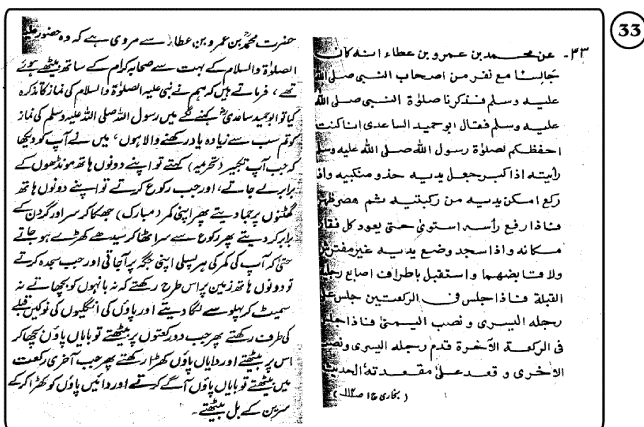 33
۴۳۔ عن محمد بن عمرو بن عطاء انه كان
جالسا مع نفر من اصحاب النبى صلى الله
عليه وسلم فذكرنا صلوٰة النبى صلى الله
عليه وسلم فقال ابو حميد الساعدى انا كنت
احفظكم لصلوٰة رسول الله صلى الله عليه وسلم
رأيته اذا كبر جعل يديه حذو منكبيه واذا
ركع امكن يديه من ركبتيه ثم هصر ظهره
فاذا رفع رأسه استوىٰ حتى يعود كل فقار
مكانه واذا سجد وضع يديه غير مفترش
ولا قابضهما واستقبل باطراف اصابع رجليه
القبلة فاذا جلس فى الركعتين جلس على
رجله اليسرى و نصب اليمنىٰ فاذا جلس
فى الركعة الآخرة قدم رجله اليسرى ونصب
الاخرى و قعد علىٰ مقعدته الحديث
(بخاری ج۱ ص۱۱۴)
حضرت محمد بن عمرو بن عطاء سے مروی ہے کہ وہ حضور علیہ
الصلوٰة والسلام کے بہت سے صحابہ کرام کے ساتھ بیٹھے ہوئے
تھے، فرماتے ہیں کہ ہم نے نبی علیہ الصلوٰة والسلام کی نماز کا تذکرہ
کیا تو ابوحمید ساعدی کہنے لگے میں رسول اللہ صلی اللہ علیہ وسلم کی نماز
کو تم سب سے زیادہ یاد رکھنے والا ہوں، میں نے آپ کو دیکھا
کہ جب آپ تکبیر (تحریمہ) کہتے تو اپنے دونوں ہاتھ مونڈھوں کے
برابر لے جاتے، اور جب رکوع کرتے تو اپنے دونوں ہاتھ
گھٹنوں پر جما دیتے پھر اپنی کمر (مبارک) جھکا کر سر اور گردن کے
برابر کر دیتے پھر رکوع سے سر اٹھا کر سیدھے کھڑے ہو جاتے
حتیٰ کہ آپ کی کمر کی ہر پسلی اپنی جگہ پر آجاتی اور جب سجدہ کرتے
تو دونوں ہاتھ زمین پر اس طرح رکھتے کہ نہ بانہوں کو بچھاتے نہ
سمیٹ کر پہلو سے لگا دیتے اور پاؤں کی انگلیوں کی نوکیں قبلے
کی طرف رکھتے پھر جب دو رکعتوں پر بیٹھتے تو بایاں پاؤں بچھا کر
اس پر بیٹھتے اور دایاں پاؤں کھڑا رکھتے پھر جب آخری رکعت
میں بیٹھتے تو بایاں پاؤں آگے کرتے اور دائیں پاؤں کو کھڑا کرکے
سرین کے بل بیٹھتے۔